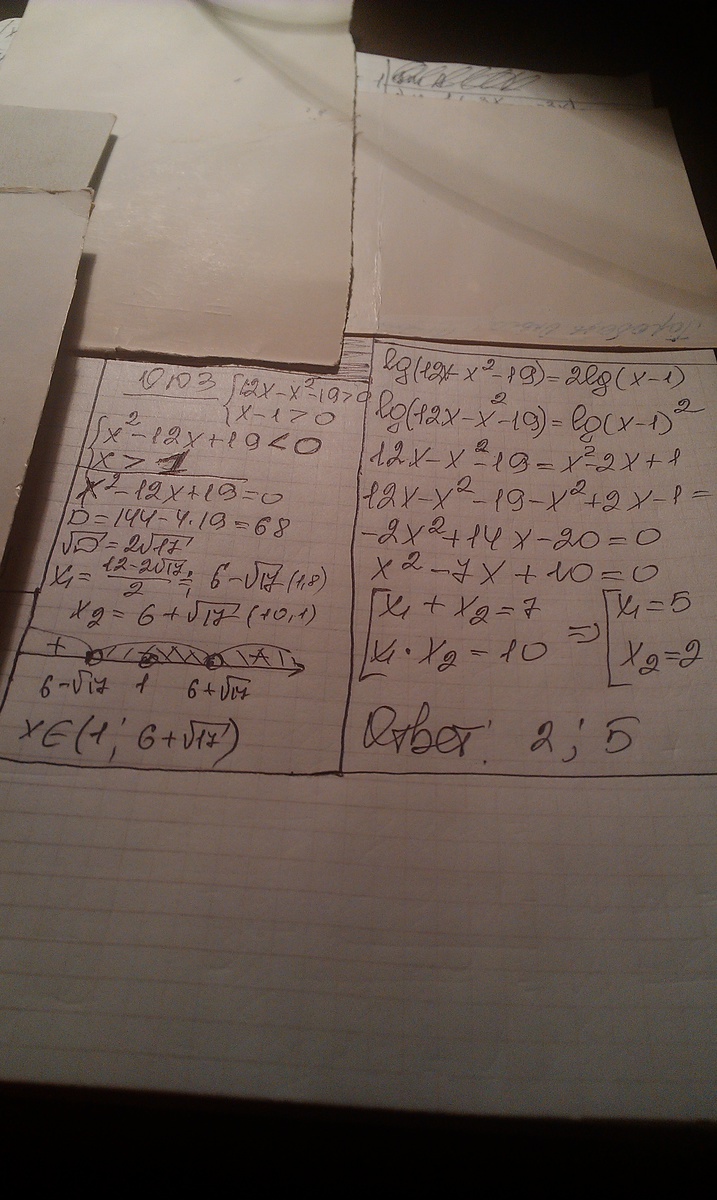 ОДЗ {12x-x²-19>0
{x-1>0
{x²-12x+19<0
{x>1
x²-12x+19=0
D=144-4·19=68
√D=2√17
x₁=(12-2√17)/2=6-√17 (1,8)
x₂=6+√17 (10,1)
+ +
6-√17 1 6+√17
x∈(1; 6+√17)
lg(12x-x²-19)=2lg(x-1)
lg(12x-x²-19)=lg(x-1)²
12x-x²-19=x²-2x+1
12x-x²-19-x²+2x-1=
-2x²+14x-20=0
x²-7x+10=0
[x₁+x₂=7 => [x₁=5
[x₁·x₂=10 [x₂=2
Ответ: 2; 5